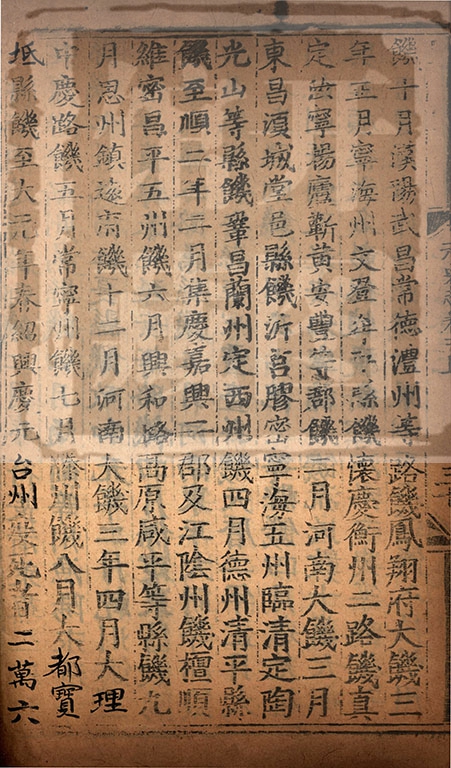 饑十月漢陽武昌常德澧州等路饑鳳翔府大饑三
年五月寧海州文登牟平縣饑懷慶衡州二路饑真
定汝寧揚廬蘄黃安豐等郡饑二月河南大饑三月
東昌須城堂邑縣饑沂莒膠密寧海五州臨清定陶
光山等縣饑鞏昌蘭州定西州饑四月德州清平縣
饑至順二年二月集慶嘉興二郡及江陰州饑檀順
維密昌平五州饑六月興和路高原咸平等縣饑九
月思州鎮遠府饑十二月河南大饑三年四月大理
中慶路饑五月常寧州饑七月滕州饑八月大都寶
坻縣饑至大元年春紹興慶元台州疫死者二萬六